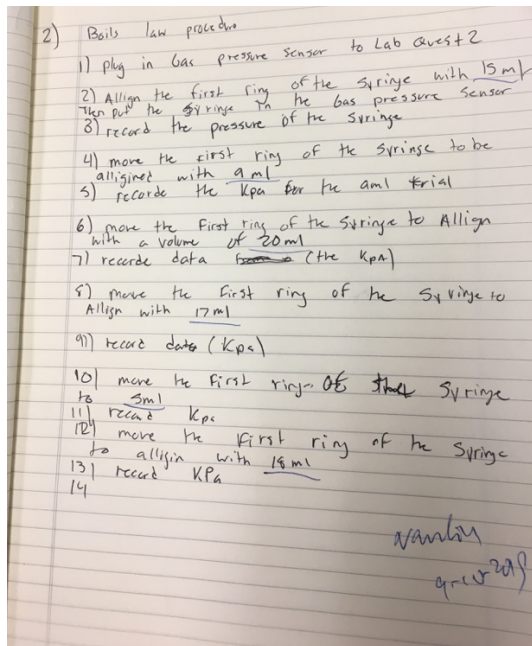 2) Boils law procedure
1) plug in Gas pressure sensor to Lab Quest 2
2) Allign the first ring of the syringe with 15 ml
Then put the syringe in the Gas pressure sensor
3) record the pressure of the syringe
4) move the first ring of the syringe to be
alligined with 9 ml
5) recorde the Kpa for the 9ml trial
6) move the First ring of the syringe to Allign
with a volume of 20 ml
7) recorde data (the KpA)
8) move the first ring of the syringe to
Allign with 17 ml
9) record data (Kpa)
10) move the First ring of the Syringe
to 5ml
11) record Kpa
12) move the First ring of the Syringe
to alligin with 18 ml
13) record KPa
14